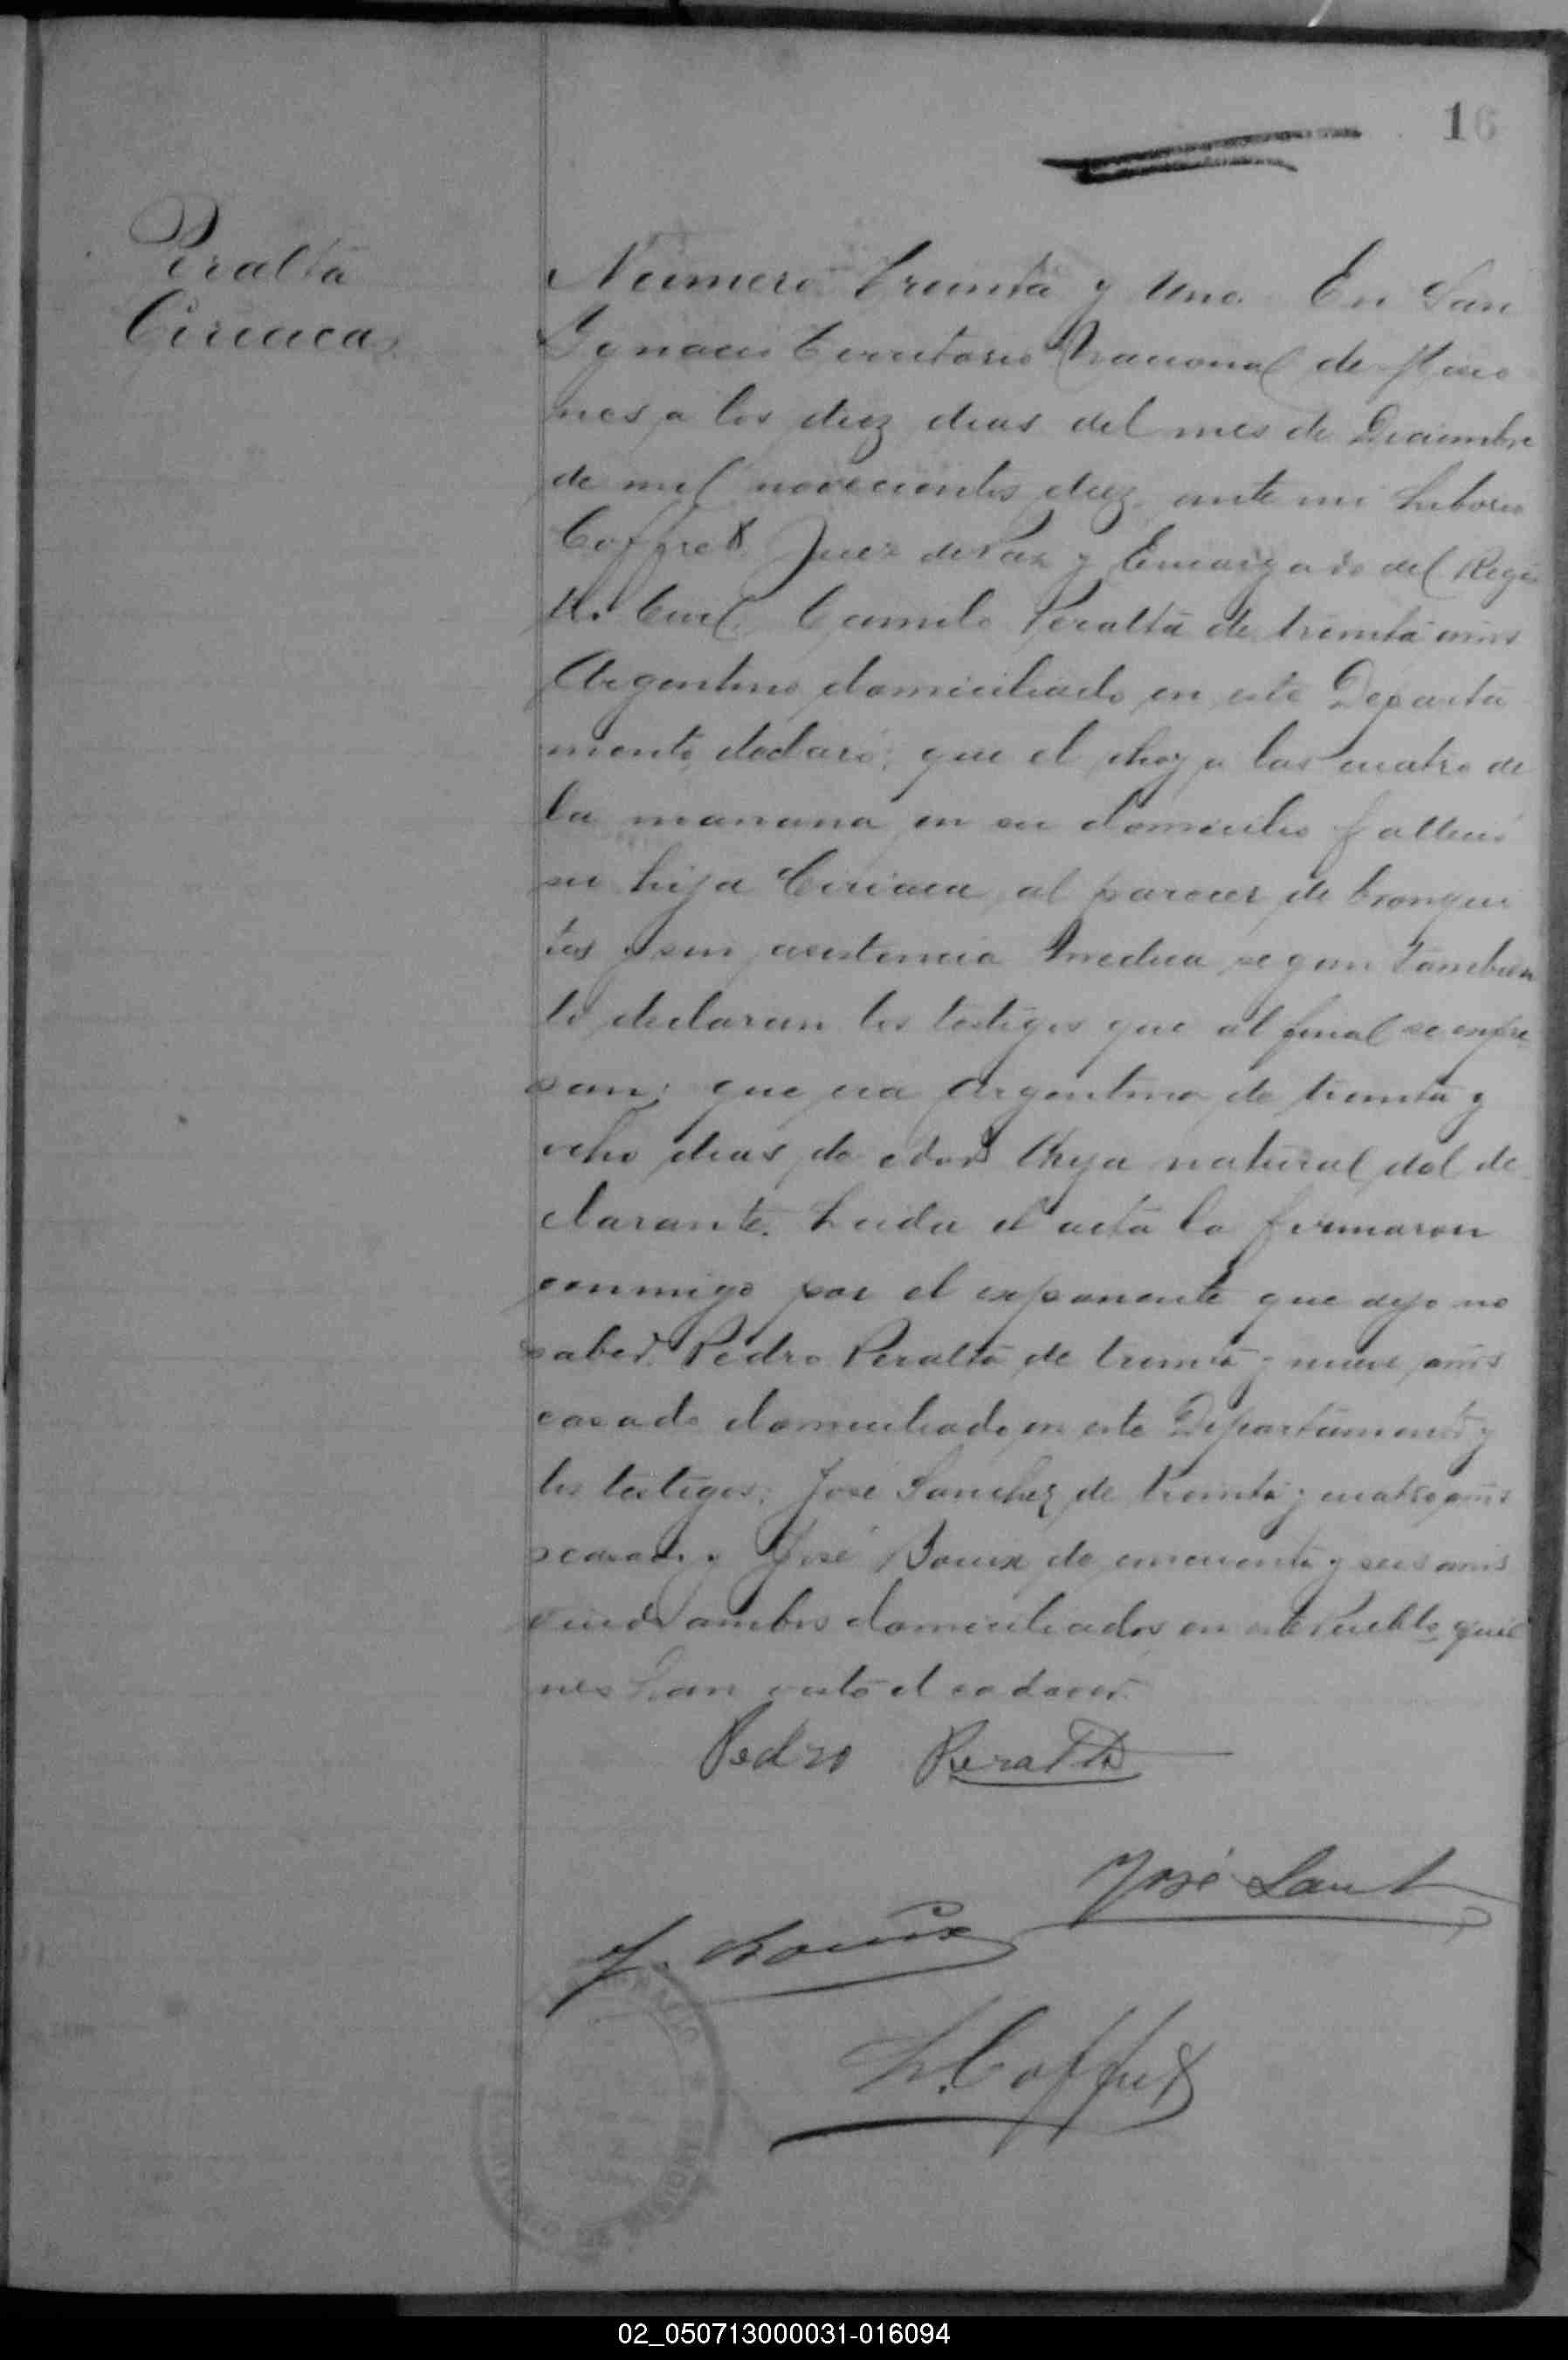 16
Peralta
Ciriaca
Número Treinta y Uno. En San
Ygnacio Territorio Nacional de Misio
nes a los diez dias del mes de Diciembre
de mil novecientos diez, ante mi Liborio
Coffret Juez de Paz y Encargado del Regis
tro Civil, Camilo Peralta de treinta años
Argentino domiciliado en este Departa
mento, declaró: que el hoy a las cuatro de
la manana en su domicilio falleció
su hija Ciriaca, al parecer de bronqui
tis y sin asistencia medica segun tambien
lo declaran los testigos que al final se expre
san; que era Argentina de treinta y
ocho dias de edad hija natural del de
clarante. Leida el acta la firmaron
conmigo por el exponente que dijo no
saber, Pedro Peralta de treinta y nueve años
casado domiciliado en este Departamento y
los testigos; José Sanchez de treinta y cuatro años
casado, y José Bouix de cincuenta y seis años
viudo ambos domiciliados en este Pueblo quie
nes han visto el cadaver.
Pedro Peralta
José
J. Bouix
L. Coffret
02_050713000031-016094